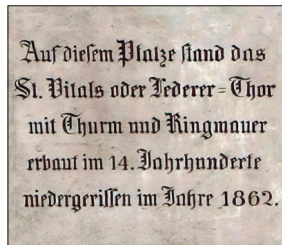 Auf diesem Platze stand das
St. Vitals oder Lederer=Thor
mit Thurm und Ringmauer
erbaut im 14. Jahrhunderte
niedergerissen im Jahre 1862.